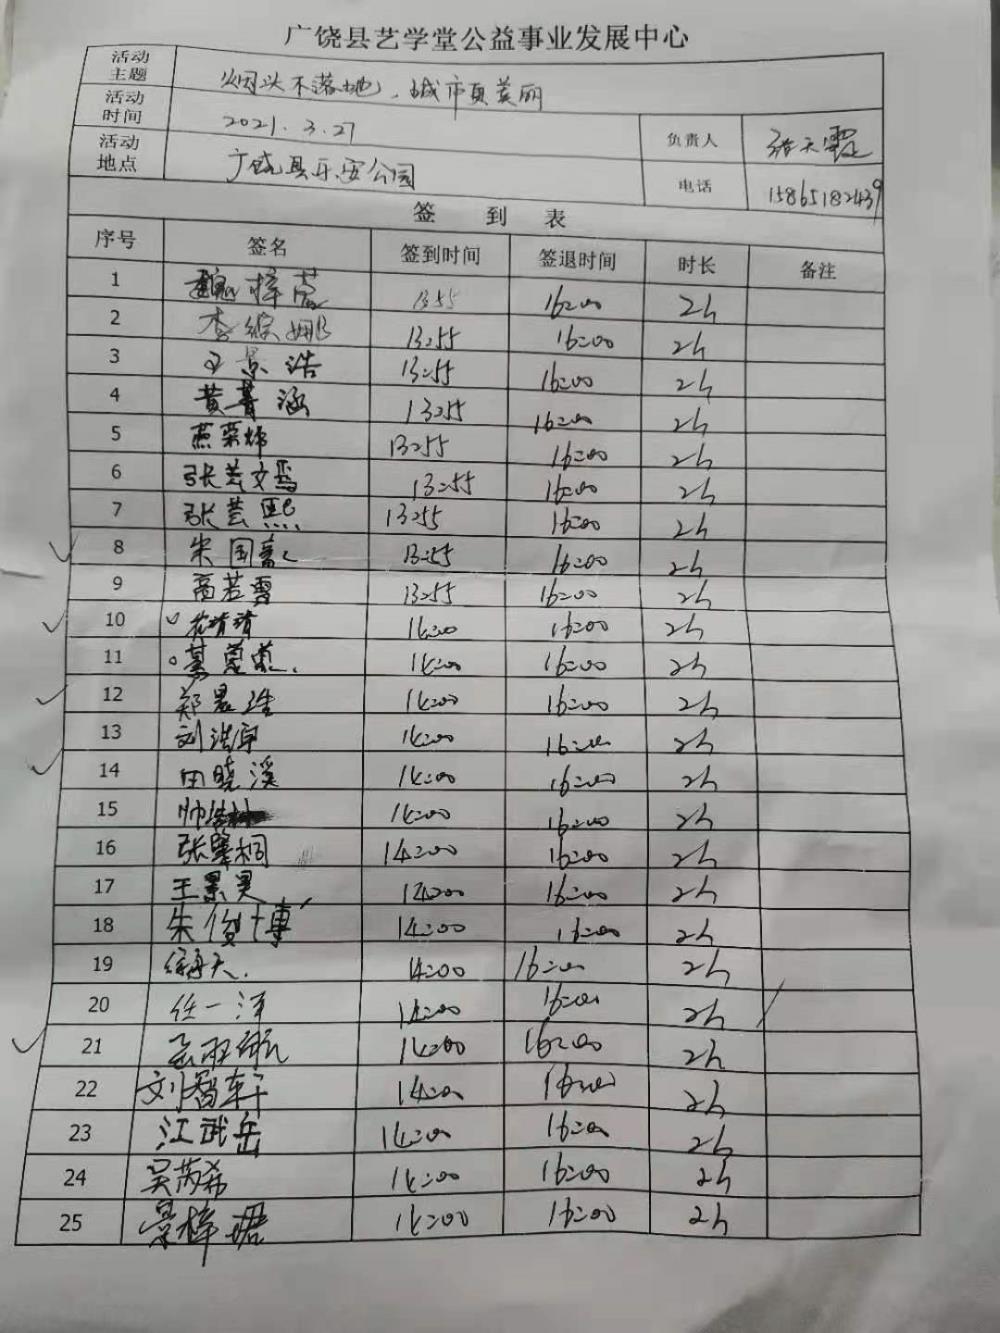 广饶县艺学堂公益事业发展中心
活动主题 烟头不落地,城市更美丽
活动时间 2021.3.27 负责人 天霞
活动地点 广饶县乐安公园 电话 15865182439
签 到 表
序号 签名 签到时间 签退时间 时长 备注
1 魏梓萱 13:55 16:00 2h
2 李综娜 13:55 16:00 2h
3 王景浩 13:55 16:00 2h
4 黄菁涵 13:55 16:00 2h
5 燕荣炜 13:55 16:00 2h
6 张芸文 13:55 16:00 2h
7 张芸熙 13:55 16:00 2h
8 朱国 13:55 16:00 2h
9 高若雪 13:55 16:00 2h
10 14:00 16:00 2h
11 14:00 16:00 2h
12 郑晨浩 14:00 16:00 2h
13 刘浩宇 14:00 16:00 2h
14 田晓溪 14:00 16:00 2h
15 帅 14:00 16:00 2h
16 张肇桐 14:00 16:00 2h
17 王景昊 14:00 16:00 2h
18 朱俊博 14:00 16:00 2h
19 天. 14:00 16:00 2h
20 任一洋 14:00 16:00 2h
21 14:00 16:00 2h
22 刘智轩 14:00 16:00 2h
23 江武岳 14:00 16:00 2h
24 吴芮希 14:00 16:00 2h
25 景梓珺 14:00 16:00 2h